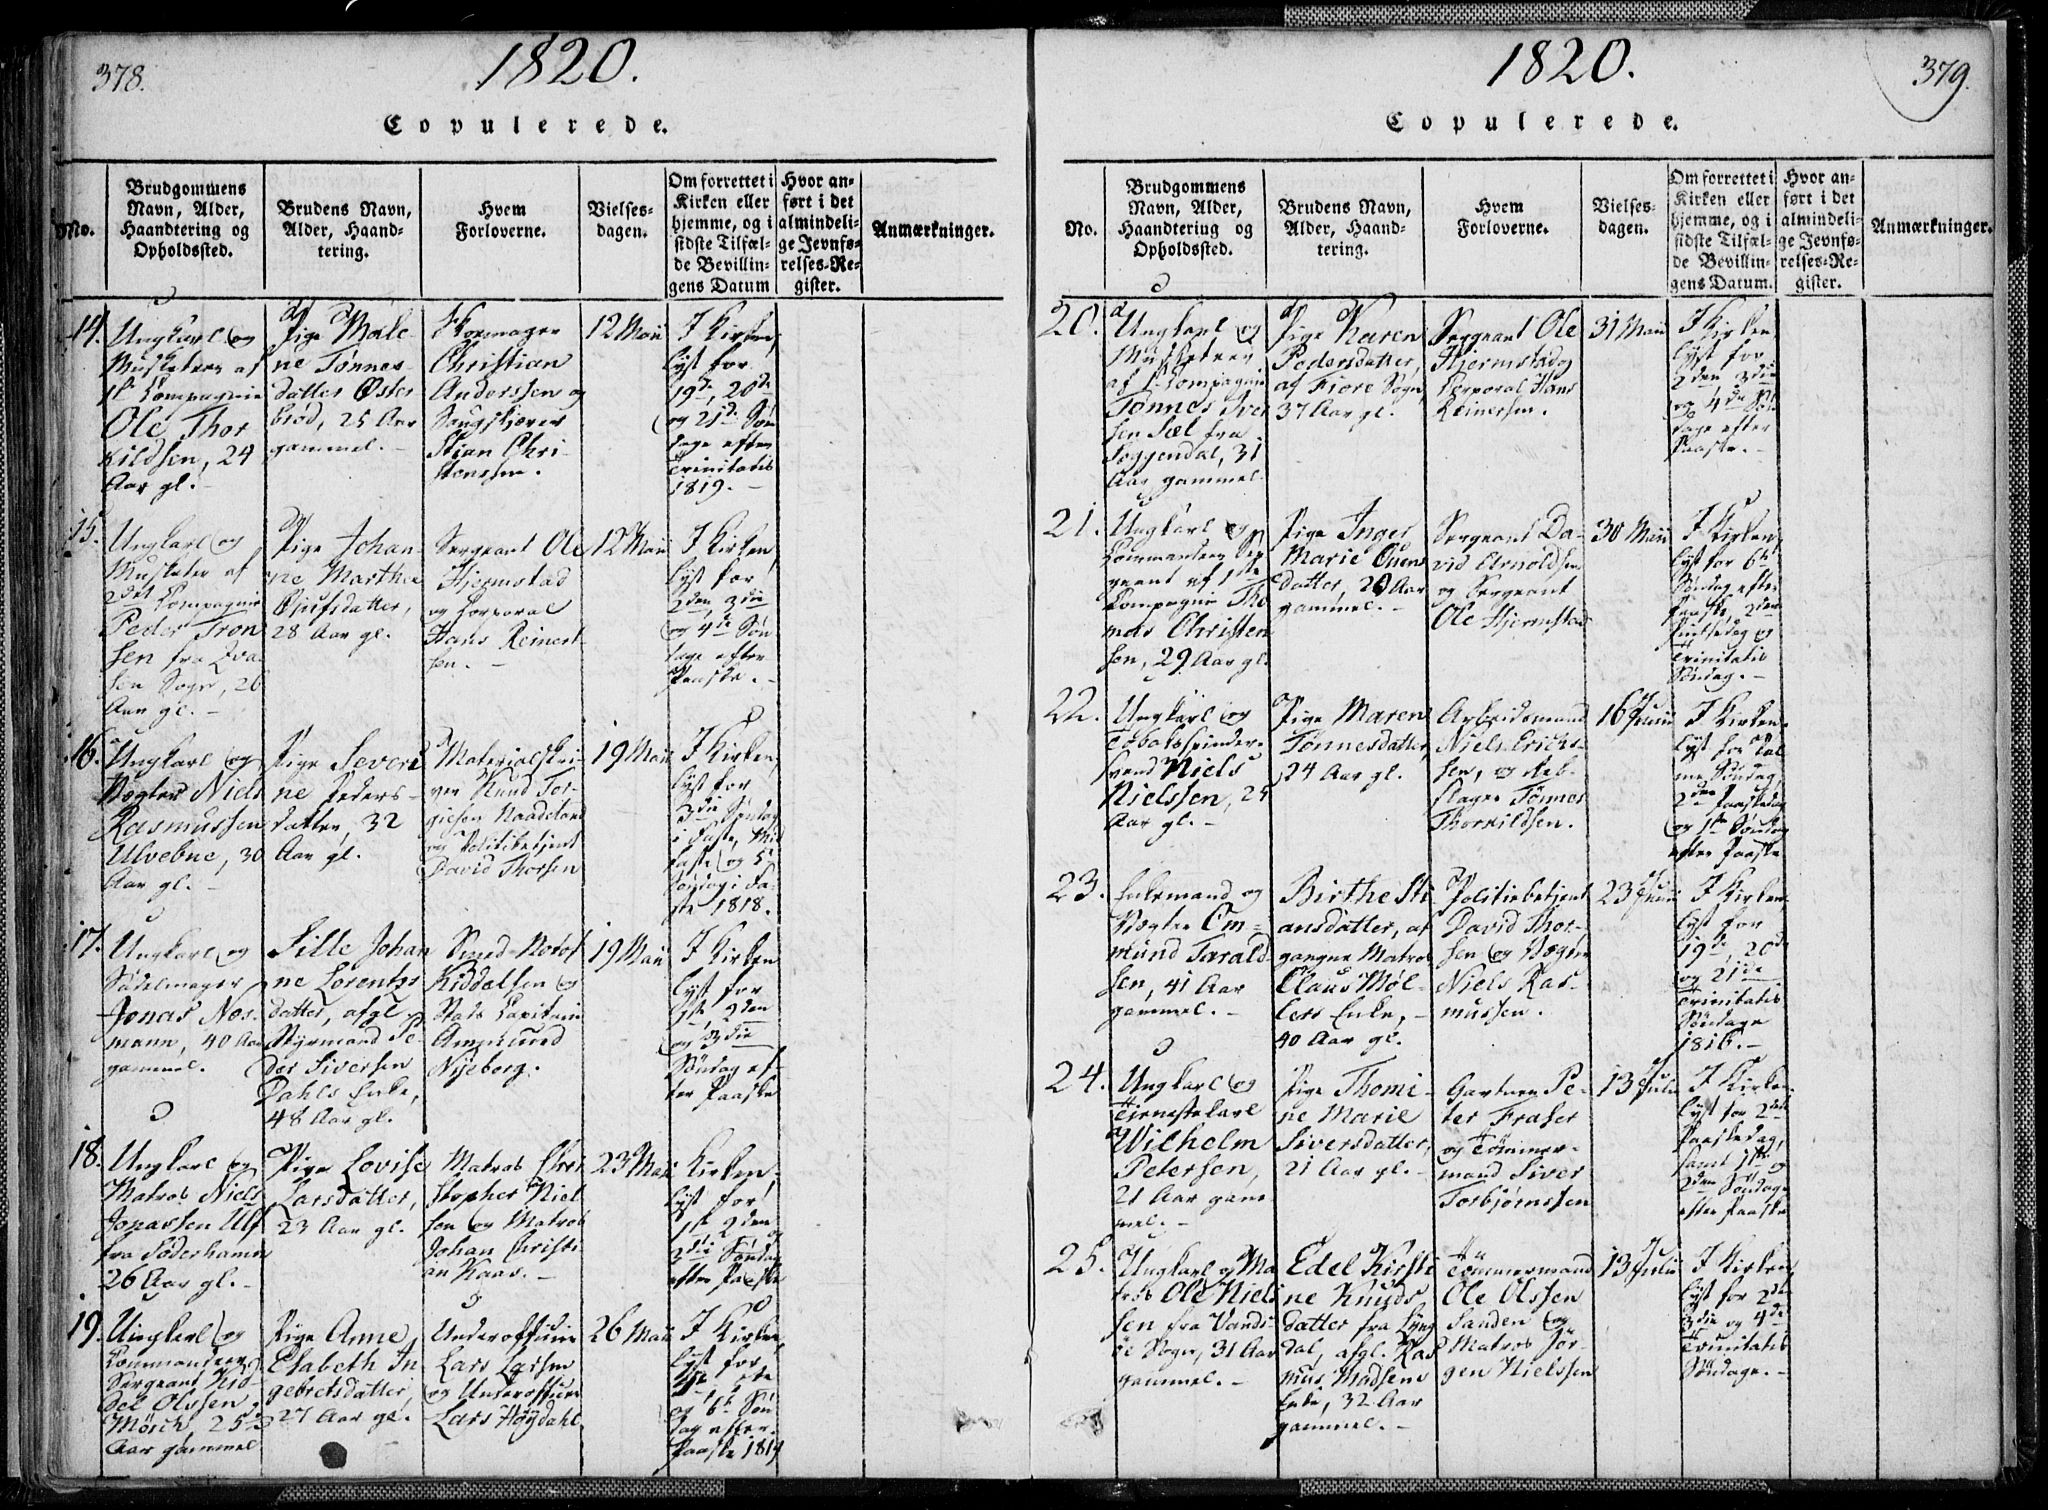 378.
1820.
Copulerede.
No.
Brudgommens
Navn, Alder,
Haandtering og
Opholdssted.
Brudens Navn,
Alder, Haand-
tering.
Hvem
Forloverne.
Vielses-
dagen.
Om forrettet i
Kirken eller
hjemme, og i
sidste Tilfæl-
de Bevillin-
gens Datum
Hvor an-
ført i det
almindeli-
ge Jevnfø-
relses-Re-
gister.
Anmærkninger.
14.
Ungkarl og
Musketeer af
1ste Compagnie
Ole Thor
kildsen, 24
Aar gl. -
Pige Male-
ne Tønnes-
datter Øster
brød, 25 Aar
gammel. -
Skomager
Christian
Anderssen og
Saugskjærer
Stian Chri-
stenssen.
12 Maii
I Kirken,
lyst for
19de, 20de
og 21de Søn
dage efter
Trinitatis
1819. -
15.
Ungkarl og
Musketer af
2det Compagnie
Peder Tron
sen fra Qva-
sen Sogn, 26
Aar gl. -
Pige Johan-
ne Marthea
Gjufsdatter,
28 Aar gl.
Sergeant Ole
Hjermstad
og Corporal
Hans Reinert
sen. -
12 Maii
I Kirken,
lyst for
2den, 3die
og 4de Søn
dage efter
Paaske. -
16.
Ungkarl og
Vægter Niels
Rasmussen
Ulvebne, 30
Aar gl. -
Pige Severi
ne Peders-
datter, 32
Aar gl.
Materialskri-
ver Knud Tor-
giesen Naadeland
og Politibetjent
David Thorsen
19 Maii
I Kirken,
lyst for
3die Søndag
i Faste, Mid
faste og 5te
Søndag i Fa-
ste 1818.
17.
Ungkarl og
Sadelmager
Jonas Nor-
mann, 40 Aar
gammel.
Sille Johan
ne Lorentz-
datter, afgl.
Styrmand Pe-
der Siversen
Dahls Enke,
48 Aar gl.
Smed
Kiddelsen og
Stads Capitain
Ammund
Nyeborg.
19 Maii
I Kirken
lyst for
1ste, 2den
og 3die
Søndag ef-
ter Paaske
18.
Ungkarl og
Matros Niels
Jonassen Ulf
fra Söderhamn
26 Aar gl. -
Pige Lovise
Larsdatter,
23 Aar gl.
Matros Chri
stopher Niel
sen og Matros
Johan Christi
an Kaas. -
23 Maii
I Kirken,
lyst for
1ste, 2den og
3die Søndag
efter Paaske
19.
Ungkarl og
Commandeer
Sergeant
Olssen
Mörch, 25
Aar gammel
Pige Anne
Elsabeth In
gebretsdatter,
27 Aar gl.
Underofficier
Lars Larsen
og Underofficier
Lars Høydahl.
26 Maii
I Kirken,
lyst for
og 6te Søn
dag efter
Paaske 1819
379.
1820.
Copulerede.
No.
Brudgommens
Navn, Alder,
Haandtering og
Opholdssted.
Brudens Navn,
Alder, Haand-
tering.
Hvem
Forloverne.
Vielses-
dagen.
Om forrettet i
Kirken eller
hjemme, og i
sidste Tilfæl-
de Bevillin-
gens Datum.
Hvor an-
ført i det
almindeli-
ge Jevnfø-
relses-Re-
gister.
Anmærkninger.
20.
Ungkarl og
Musketeer
af 1ste Compagnie
Tønnes Iver
sen Sæl fra
Soggendal, 31
Aar gammel.
Pige Karen
Pedersdatter,
af Fiore Sogn,
37 Aar gl.
Sergeant Ole
Hjermstad og
Corporal Hans
Reinertsen.
31 Maii
I Kirken
lyst for
2den, 3die
og 4de Søn
dage efter
Paaske. -
21.
Ungkarl og
Commandeer Ser
geant af 1ste
Compagnie Tho
mas Christen
sen, 29 Aar gl.
Pige Inger
Marie Ouens
datter, 20 Aar
gammel. -
Sergeant Da-
vid Arnoldsen
og Sergeant
Ole Hjermstad
30 Maii
I Kirken,
lyst for 6te
Søndag efter
Paaske, 2den
Pintsedag og
Trinitatis
Søndag. -
22.
Ungkarl og
Tobaksspinder-
svend Niels
Nielssen, 25
Aar gl. -
Pige Maren
Tønnesdatter,
24 Aar gl.
Arbeidsmand
Niels Erichs-
sen, og Reb-
slager Tønnes
Thorkildsen.
16 Junii
I Kirken.
lyst for Pal
me Søndag,
2den Paaskedag
og 1ste Søndag
efter Paaske
23.
Enkemand og
Vægter Om-
mund Tarald
sen, 41 Aar
gammel. -
Birthe Sti
ansdatter, af
gangne Matros
Claus Møl-
lers Enke, -
40 Aar gl.
Politiebetjent
David Thor-
sen og Vægter
Niels Ras-
mussen.
23 Junii
I Kirken,
lyst for
19de, 20de
og 21de
Trinitatis
Søndage
1816. -
24.
Ungkarl og
Tjenestekarl
Wilhelm
Petersen,
21 Aar gam
mel. -
Pige Thomi-
ne Marie
Siversdatter,
21 Aar gl. -
Gartner Pe-
ter Fraser
og Tømmer-
mand Siver
Torbjørnssen
13 Julii
I Kirken.
lyst for 2den
Paaskedag,
samt 1ste og
2den Søndage
efter Paaske
25.
Ungkarl og Ma
tros Ole Niels
sen fra Vands
öe Sogn, 31 Aar
gammel. -
Edel Kirsti
ne Knuds
datter fra Lyng
dal, afgl. Ras
mus Madsens
Enke, 32 Aar
gammel. -
Tömmermand
Ole Olssen
Sanden og
Matros Jör-
gen Nielssen
13 Julii
I Kirken
lyst for 2den
3die og 4de
Trinitatis
Søndage. -